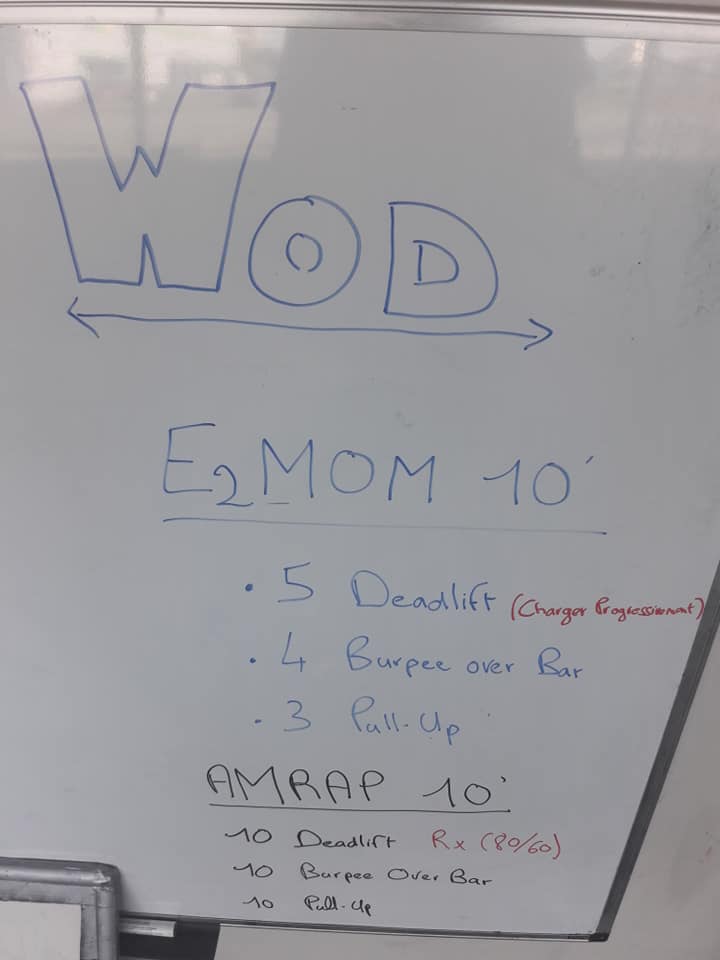 WOD
E2MOM 10'
• 5 Deadlift (Charger Progressivement)
• 4 Burpee over Bar
• 3 Pull-Up
AMRAP 10'
10 Deadlift Rx (80/60)
10 Burpee Over Bar
10 Pull-Up